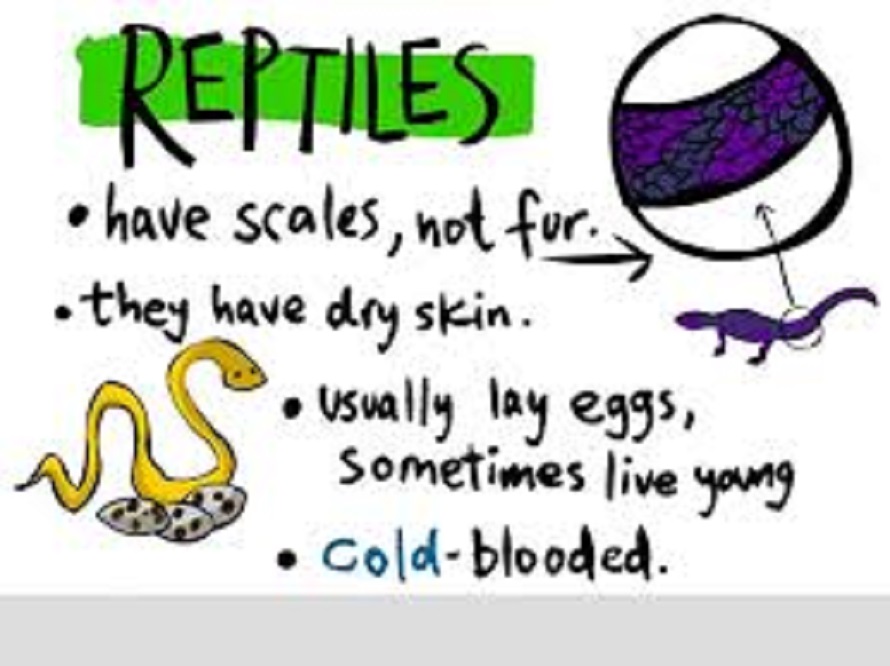 REPTILES
• have scales, not fur.
• they have dry skin.
• usually lay eggs,
sometimes live young
• Cold-blooded.